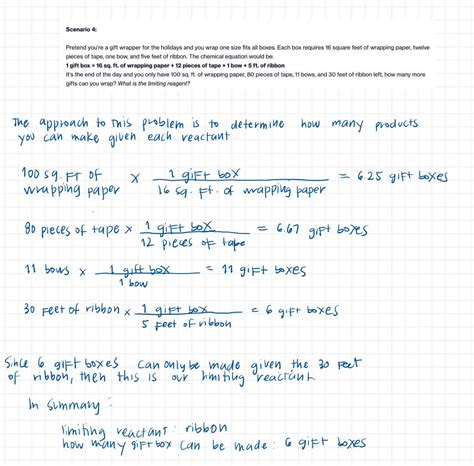 Scenario 4:
Pretend you're a gift wrapper for the holidays and you wrap one size fits all boxes. Each box requires 16 square feet of wrapping paper, twelve
pieces of tape, one bow, and five feet of ribbon. The chemical equation would be:
1 gift box = 16 sq. ft. of wrapping paper + 12 pieces of tape + 1 bow + 5 ft. of ribbon
It's the end of the day and you only have 100 sq. ft. of wrapping paper, 80 pieces of tape, 11 bows, and 30 feet of ribbon left, how many more
gifts can you wrap? What is the limiting reagent?
The approach to this problem is to determine how many products
you can make given each reactant.
100 sq. FT of wrapping paper x 1 giFt box / 16 sq. Ft. of wrapping paper = 6.25 giFt boxes
80 pieces of tape x 1 giFt box / 12 pieces of tape = 6.67 giFt boxes
11 bows x 1 gift box / 1 bow = 11 giFt boxes
30 Feet of ribbon x 1 giFt box / 5 Feet of ribbon = 6 giFt boxes
Since 6 giFt boxes can only be made given the 30 Feet
of ribbon, then this is our limiting reactant
In summary:
limiting reactant: ribbon
how many giFt box can be made: 6 giFt boxes